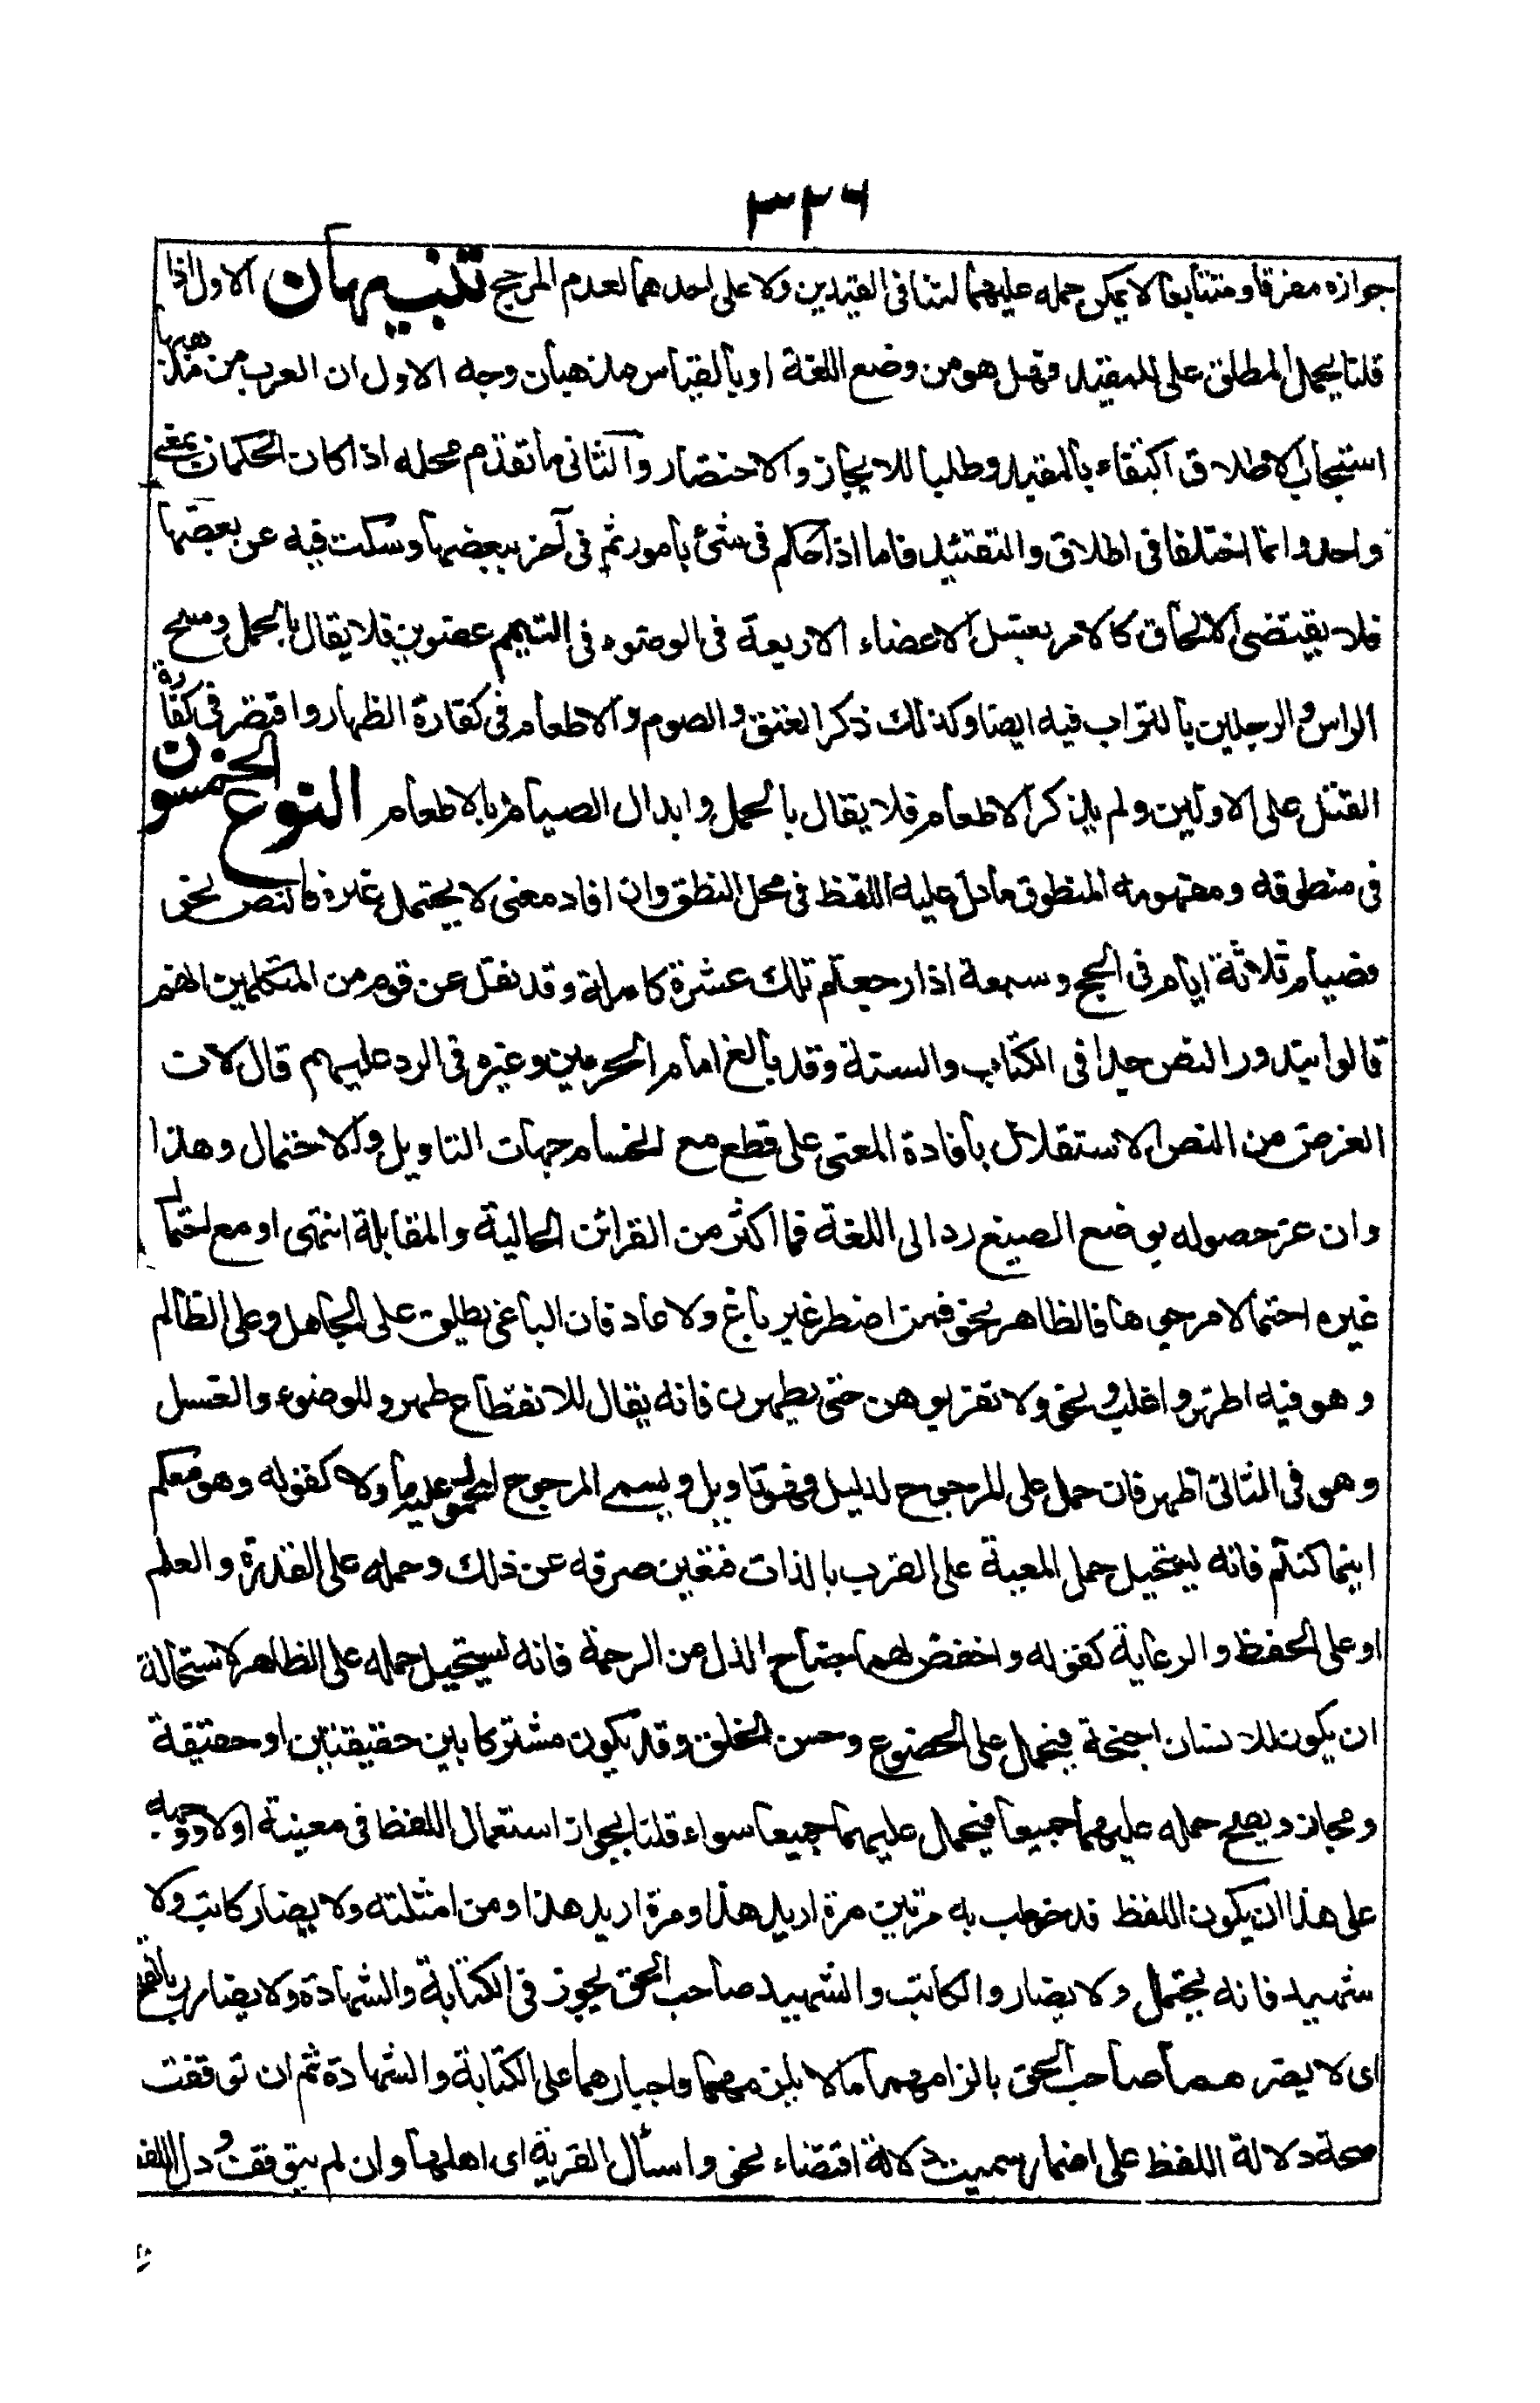 ٣٢٦
جوازه مفرقا ومتتابعا لا يمكن حمله عليهما لتنافى القيدين ولا على احدهما لعدم المرجح تنبيهان الاول اذا
قلنا يحمل المطلق على المقيد فهل هو من وضع اللغة او بالقياس مذهبان وجه الاول ان العرب من مذهبها
استحباب الاطلاق اكتفاء بالمقيد وطلبا للايجاز والاختصار والثانى ما تقدم محله اذا كان الحكمان بمعنى
واحد وانما اختلفا فى اطلاق والتقييد فاما اذا حكم فى شئ بامور ثم فى آخر ببعضها وسكت فيه عن بعضها
فلا يقتضى الالحاق كالامر بغسل الاعضاء الاربعة فى الوضوء فى التيمم عضوين فلا يقال بالحمل ومسح
الراس والرجلين بالتراب فيه ايضا وكذلك ذكر العتق والصوم والاطعام فى كفارة الظهار واقتصر فى كفارة
القتل على الاولين ولم يذكر الاطعام فلا يقال بالحمل وابدال الصيام بالاطعام النوع الخمسون
فى منطوقه ومفهومه المنطوق ما دل عليه اللفظ فى محل النطق وان افاد معنى لا يحتمل غيره فالنص نحو
فصيام ثلاثة ايام فى الحج وسبعة اذا رجعتم تلك عشرة كاملة وقد نقل عن قوم من المتكلمين انهم
قالوا بندور النص جدا فى الكتاب والسنة وقد بالغ امام الحرمين وغيره فى الرد عليهم قال لان
الغرض من النص الاستقلال بافادة المعنى على قطع مع انحسام جهات التاويل والاحتمال وهذا
وان عز حصوله بوضع الصيغ ردا الى اللغة فما اكثر من القرائن الحالية والمقابلة انتهى او مع احتمال
غيره احتمالا مرجوحا فالظاهر نحو فمن اضطر غير باغ ولا عاد فان الباغى يطلق على الجاهل وعلى الظالم
وهو فيه اظهر واغلب ونحو ولا تقربوهن حتى يطهرن فانه يقال للانقطاع طهر وللوضوء والغسل
وهو فى الثانى اظهر فان حمل على المرجوح لدليل فهو تاويل ويسمى المرجوح المحمول عليه مأولا كقوله وهو معكم
اينما كنتم فانه يستحيل حمل المعية على القرب بالذات فتعين صرفه عن ذلك وحمله على القدرة والعلم
او على الحفظ والرعاية كقوله واخفض لهما جناح الذل من الرحمة فانه يستحيل حمله على الظاهر لاستحالة
ان يكون للانسان اجنحة فيحمل على الخضوع وحسن الخلق وقد يكون مشتركا بين حقيقتين او حقيقة
ومجاز ويصح حمله عليهما جميعا فيحمل عليهما جميعا سواء قلنا بجواز استعمال اللفظ فى معنييه اولا ووجهه
على هذا ان يكون اللفظ قد خوطب به مرتين مرة اريد هذا ومرة اريد هذا ومن امثلته ولا يضار كاتب ولا
شهيد فانه يحتمل ولا يضار والكاتب والشهيد صاحب الحق بجور فى الكتابة والشهادة ولا يضارر بالفتح
اى لا يضرهما صاحب الحق بالزامهما ما لا يلزمهما واجبارهما على الكتابة والشهادة ثم ان توقفت
صحة دلالة اللفظ على اضمار سميت دلالة اقتضاء نحو واسأل القرية اى اهلها وان لم يتوقف ودل اللفظ